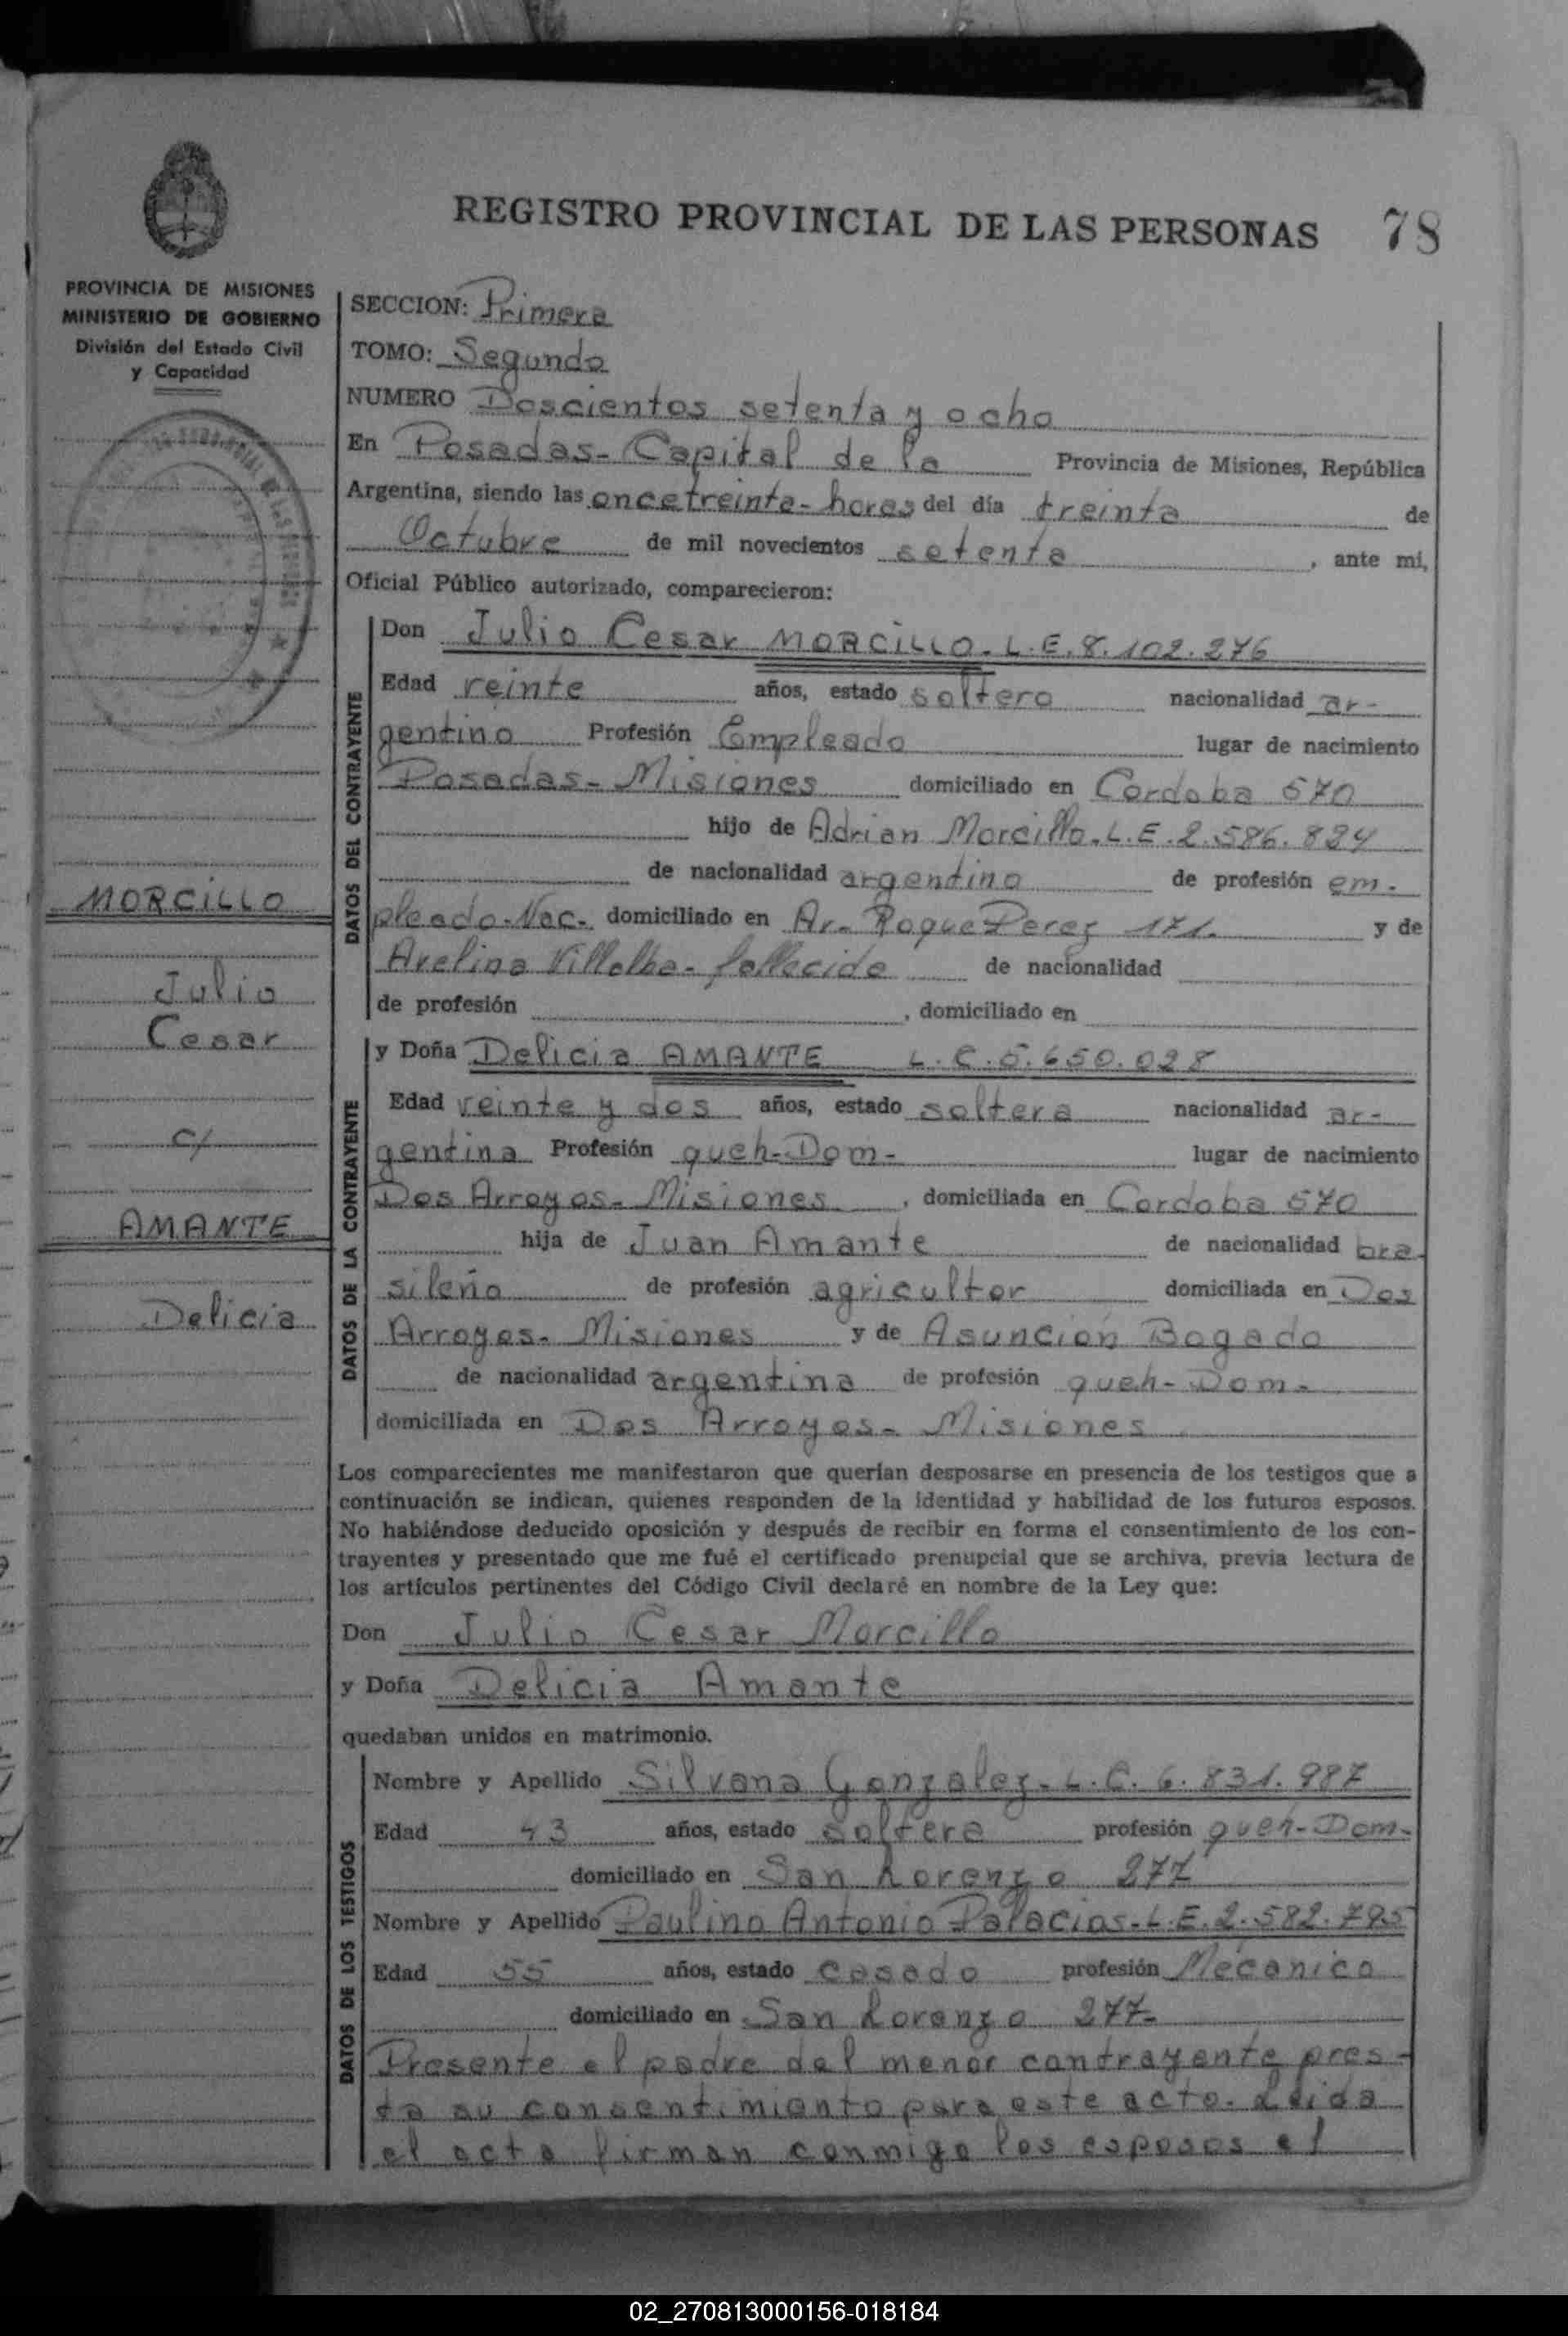 REGISTRO PROVINCIAL DE LAS PERSONAS 78
PROVINCIA DE MISIONES
MINISTERIO DE GOBIERNO
División del Estado Civil
y Capacidad
MORCILLO
Julio
Cesar
c/
AMANTE
Delicia
SECCION: Primera
TOMO: Segundo
NUMERO Doscientos setenta y ocho
En Posadas - Capital de la Provincia de Misiones, República
Argentina, siendo las once treinta - horas del día treinta de
Octubre de mil novecientos setenta, ante mí,
Oficial Público autorizado, comparecieron:
DATOS DEL CONTRAYENTE
Don Julio Cesar MORCILLO. L.E. 8.102.276
Edad veinte años, estado soltero nacionalidad ar-
gentino Profesión Empleado lugar de nacimiento
Posadas - Misiones domiciliado en Cordoba 570
hijo de Adrian Morcillo. L.E. 2.586.824
de nacionalidad argentino de profesión em-
pleado - Nac. domiciliado en Av. Roque Perez 171. y de
Avelina Villalba - fallecida de nacionalidad
de profesión , domiciliado en
DATOS DE LA CONTRAYENTE
y Doña Delicia AMANTE L.C. 5.650.028
Edad veinte y dos años, estado soltera nacionalidad ar-
gentina Profesión queh - Dom - lugar de nacimiento
Dos Arroyos - Misiones, domiciliada en Cordoba 570
hija de Juan Amante de nacionalidad bra
sileño de profesión agricultor domiciliada en Dos
Arroyos - Misiones y de Asunción Bogado
de nacionalidad argentina de profesión queh - Dom -
domiciliada en Dos Arroyos - Misiones
Los comparecientes me manifestaron que querían desposarse en presencia de los testigos que a
continuación se indican, quienes responden de la identidad y habilidad de los futuros esposos.
No habiéndose deducido oposición y después de recibir en forma el consentimiento de los con-
trayentes y presentado que me fué el certificado prenupcial que se archiva, previa lectura de
los artículos pertinentes del Código Civil declaré en nombre de la Ley que:
Don Julio Cesar Morcillo
y Doña Delicia Amante
quedaban unidos en matrimonio.
DATOS DE LOS TESTIGOS
Nombre y Apellido Silvana Gonzalez - L.C. 6.831.987
Edad 43 años, estado soltera profesión queh - Dom -
domiciliado en San Lorenzo 277
Nombre y Apellido Paulino Antonio Palacios - L.E. 2.582.795
Edad 55 años, estado casado profesión Mecanico
domiciliado en San Lorenzo 277 -
Presente el padre del menor contrayente pres-
ta su consentimiento para este acto. Leida
el acta firman conmigo los esposos el
02_270813000156-018184